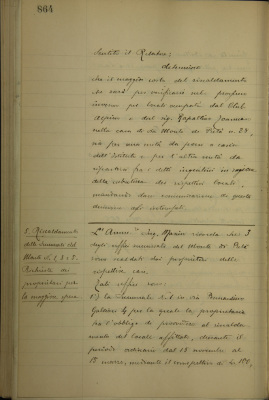 864
Sentito il Relatore;
determina
che il maggior costo del riscaldamento
da essi per verificarsi nel prossimo
inverno pei locali occupati dal Club
Alpino e dal sig. Kapaltkor Joanna
nella casa di via Monte di Pietà n. 28,
sia per una metà da porre a carico
dell'Istituto e per l'altra metà da
ripartirsi fra i detti inquilini in ragione
della cubatura dei rispettivi locali,
mandando dare comunicazione di questa
decisione agli interessati.
5. Riscaldamento
delle Succursali del
Monte N. 1, 3 e 5.
Richieste dei
proprietari per
la maggiore spesa.
L'Amm.re Ing. Spurio ricorda che 3
degli uffici succursali del Monte di Pietà
sono riscaldati dai proprietari delle
rispettive case.
Tali uffici sono:
1°) la Succursale sita in via Bernardino
Galliari 4, per la quale la proprietaria
ha l'obbligo di provvedere al riscalda-
mento del locale affittato, durante il
periodo ordinario dal 15 novembre al
15 marzo, mediante il corrispettivo di L. 180,